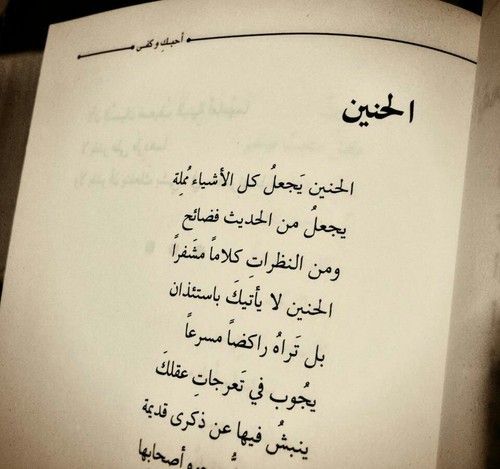 أحبكِ وكفى
الحنين
الحنين يَجعلُ كل الأشياء مُملة
يجعلُ من الحديث فضائح
ومن النظراتِ كلاماً مشَفراً
الحنين لا يأتيكَ باستئذان
بل تَراهُ راكضاً مسرعاً
يجُوب في تَعرجاتِ عقلكَ
ينبشُ فيها عن ذكرى قديمة
أصحابها